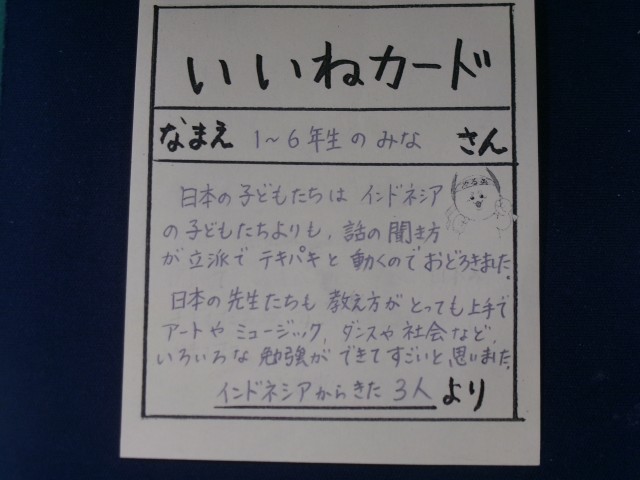 いいねカード
なまえ 1〜6年生のみな さん
日本の子どもたちは インドネシア
の子どもたちよりも、話の聞き方
が立派で テキパキと動くので おどろきました。
日本の先生たちも 教え方が とっても上手で
アートや ミュージック、ダンスや 社会など、
いろいろな 勉強ができて すごいと 思いました。
インドネシアからきた 3人 より